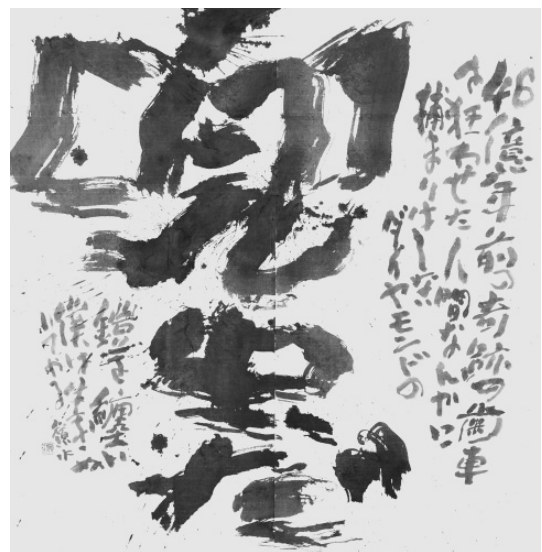 46億年前の奇跡の歯車
を狂わせた人間なんかに
捕まりはしない
ダイヤモンドの
兜虫
鎧を纏い
僕は